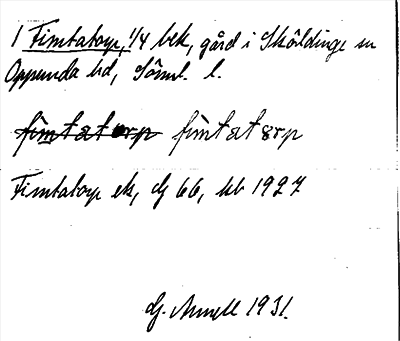 1 Fimtatorp, 1/4 bek, gård i Sköldinge sn
Oppunda hd, Söml. l.
fimtatorp fimtatårp
Fimtatorp ek, dj 66, kb 1927
Dj. Arnell 1931.